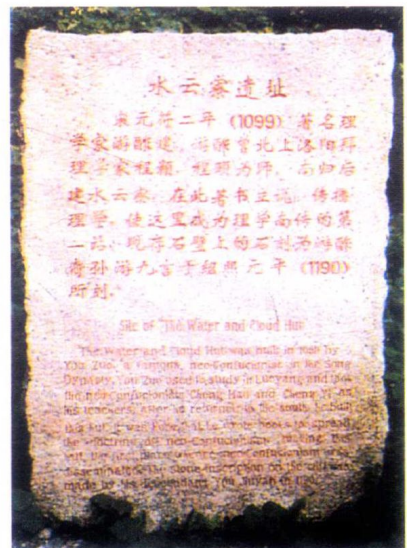 水云寮遗址
宋元符二年（1099）著名理
学家游酢建。游酢曾北上洛阳拜
理学家程颢、程颐为师，南归后
建水云寮，在此著书立说，传播
理学，使这里成为理学南传的第
一站。现存石壁上的石刻为游酢
裔孙游九言于绍熙元年（1190）
所刻。
Site of The Water and Cloud Hut
The Water and Cloud Hut was built in 1099 by
You Zuo, a famous neo-Confucianist in the Song
Dynasty. You Zuo used to study in Luoyang and
the neo-Confucianists Cheng Hao and Cheng Yi as
his teachers. After he returned to the south, he built
this hut. It was here that he wrote books to spread
the doctrine of neo-Confucianism, making this
hut the first place where neo-Confucianism was
disseminated. The stone inscription on the cliff was
made by his descendant You Jiuyan in 1190.